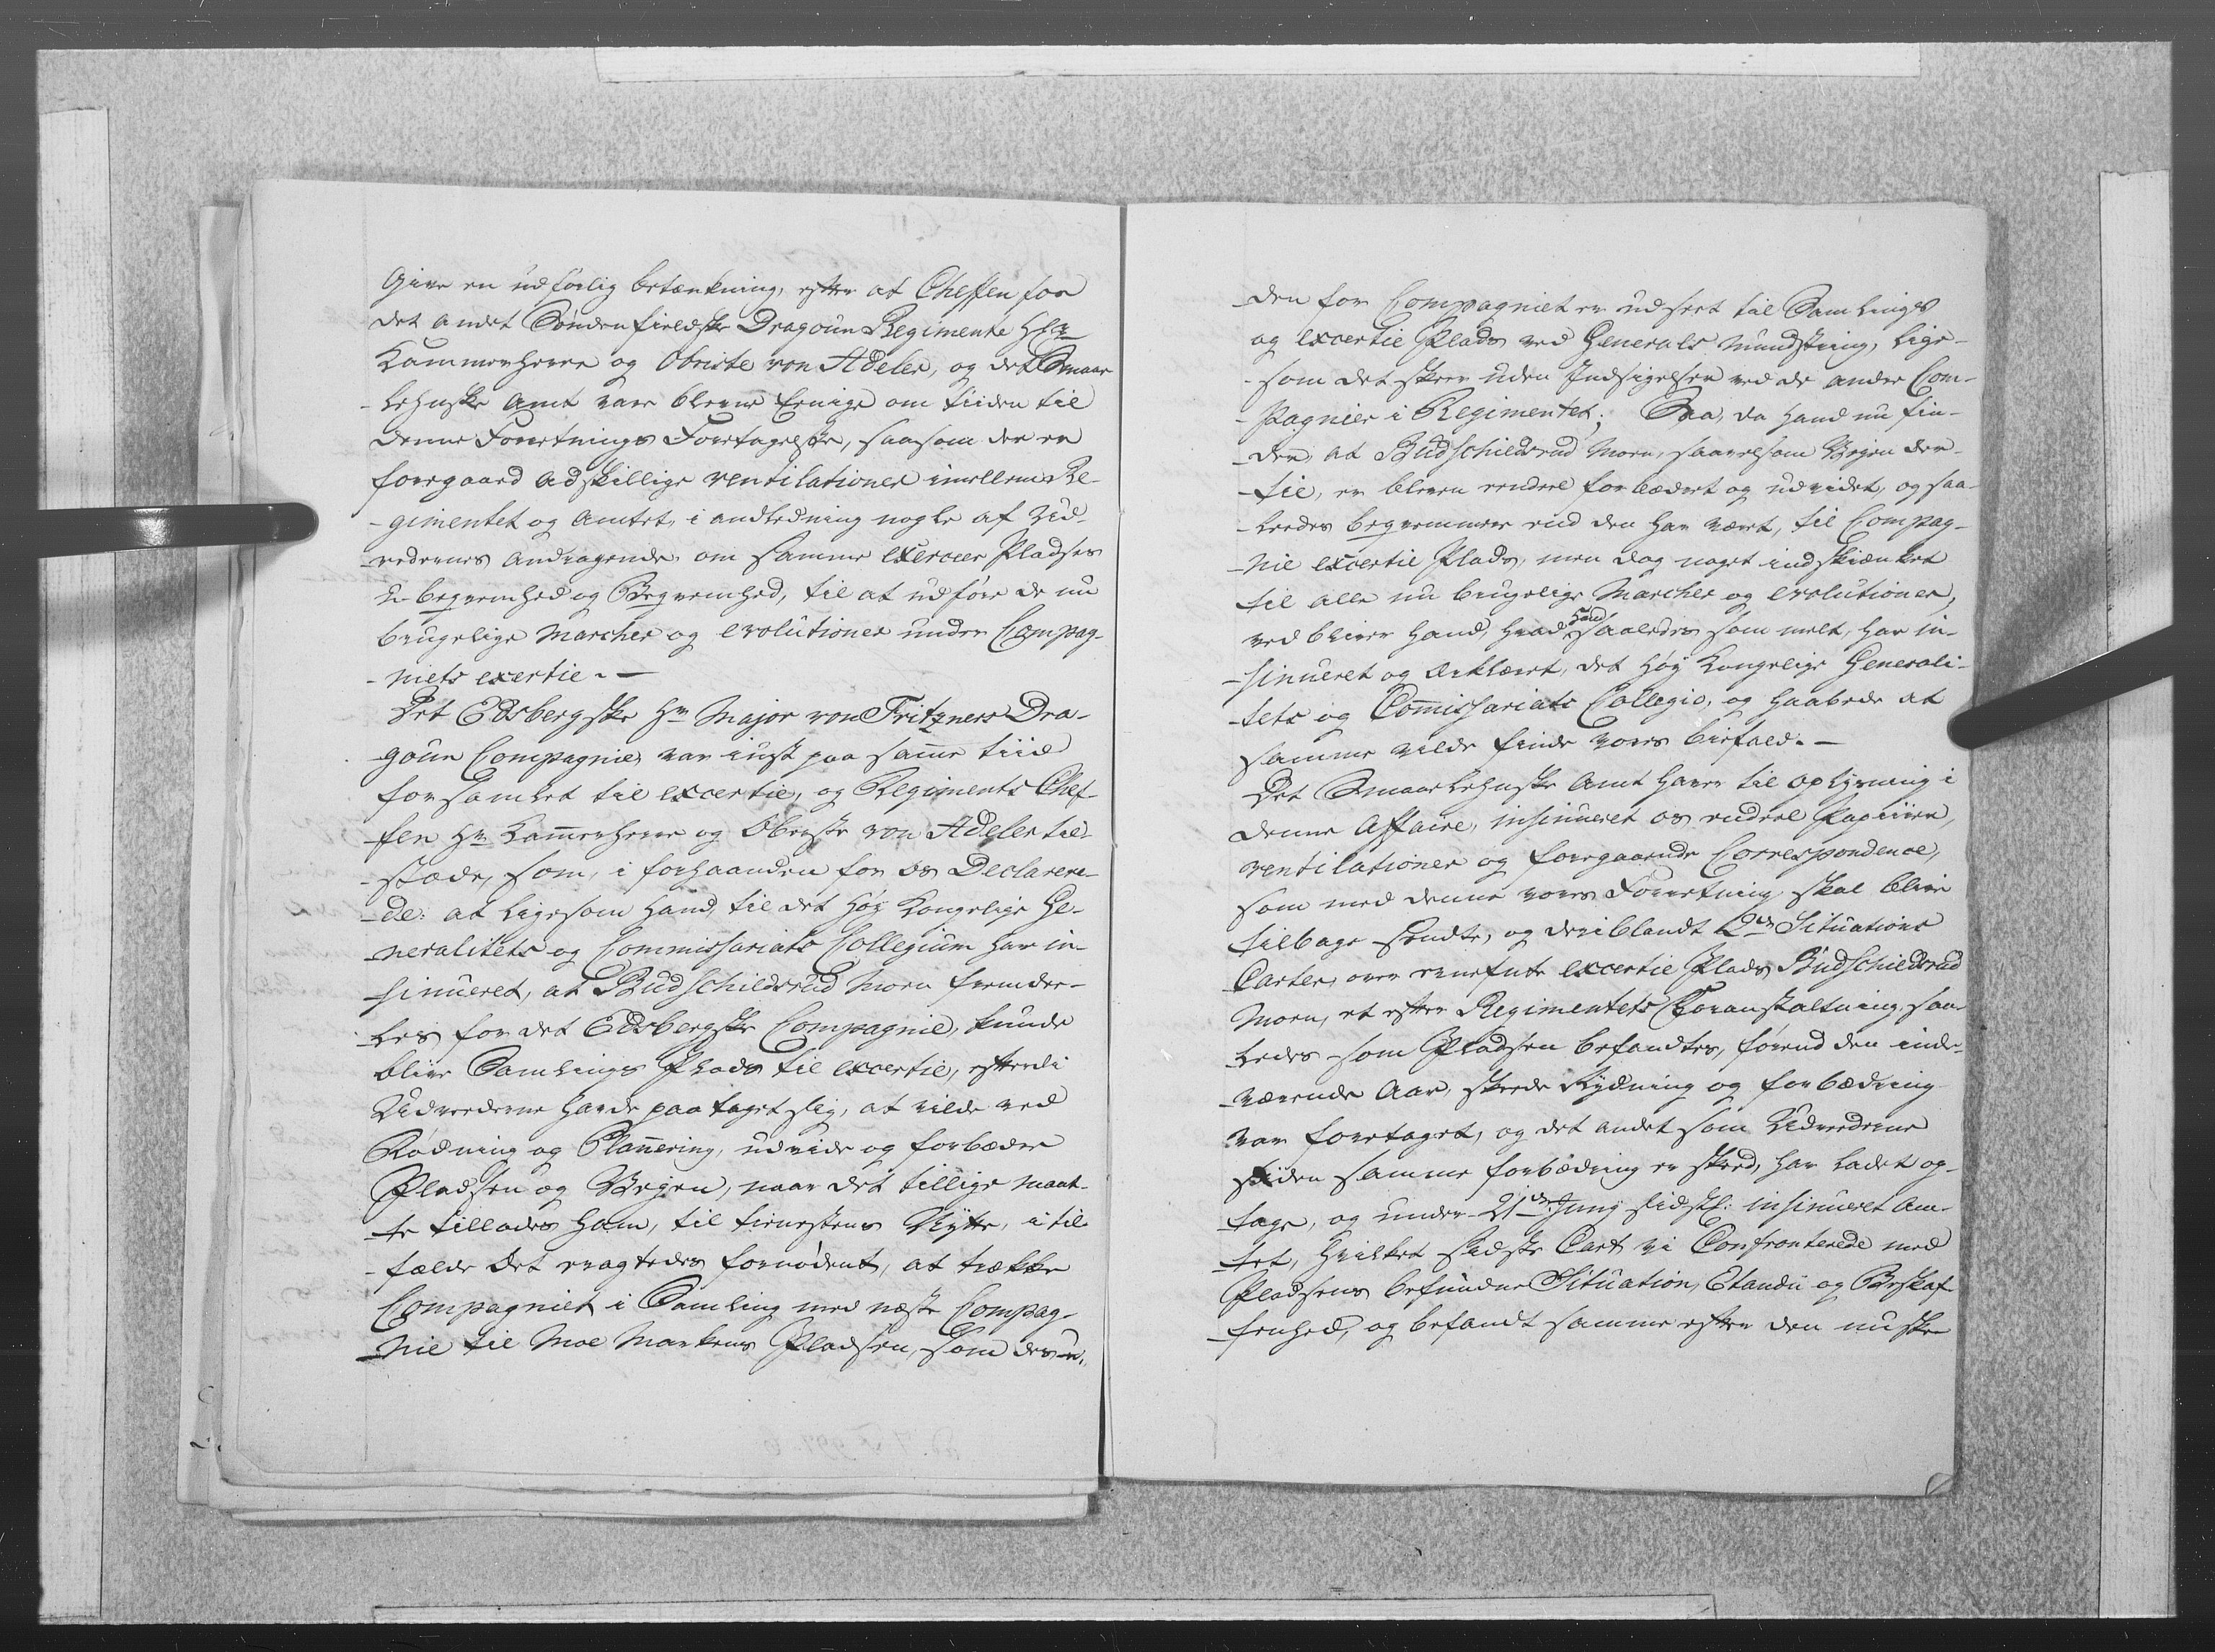 Give en udførlig betænkning, efter at Cheffen for
det andet Søndenfieldske Dragoun Regimente Hr:
Kammerherre og Obriste von Adeler, og det Smaae
-lehnske Amt vare blevne Eenige om tiiden til
denne Forretnings Foretagelse, saasom der er
foregaaed adskillige ventilationer imellem Re-
-gimentet og Amtet, i andledning nogle af Ud-
-redernes andragende om samme Exercer Pladses
Ubeqvemhed og Beqvemhed, til at udføre de nu
brugelige Marcher og evolutioner under Compag-
-niets exertie. —
Det Edsbergske Hr Major von Fritzners Dra-
goun Compagnie var iust paa samme tiid
forsamlet til excertie, og Regiments Chef-
fen Hr Kammerherre og Obriste von Adeler til-
-stæde, som, i forhaanden for os Declarere-
-de: at ligesom hand, til det Høy Kongelige Ge-
-neralitets og Commissariats Collegium har in-
-sinueret, at Budschildsrud Moen fremde-
-les for det Edsbergske Compagnie, kunde
blive Samlings Plads til excertie, efterdi
Udrederne havde paataget sig, at vilde ved
Rødning og Planering, udvide og forbædre
Pladsen og Vejen, naar det tillige maat-
-te tillades ham, til tienestens Nytte, i til-
-fælde det eragtedes fornødent, at trække
Compagniet i Samling med næste Compag-
-nie til Moe Markens Pladsen, som des u.
den for Compagniet er udseet til Samlings
og excertie Plads ved Generals Mundstring, lige-
-som det skeer uden Indsigelser ved de andre Com-
-pagnier i Regimentet; Saa, da hand nu fin-
-der, at Budschildsrud Moen, saavelsom Vejen der-
-til, er bleven rendeel forbædret og udvidet, og saa-
-leedes beqvemmere end den har været, til Compag-
-nie excertie Plads, men dog noget indskrænket
til alle nu brugelige Marcher og evolutioner,
ved bliver hand, hvad hand saaledes som melt, har in-
-sinueret og Erklæret, det Høy Kongelige Generali-
-tets og Commissariats Collegio, og haabede at
samme vilde finde vores biefald. —
Det Smaalehnske Amt haver til oplysning i
denne Affaire, insinueret os endeel Papiirer,
ventilationer og foregaaende Correspondence,
som med denne vores Forretning skal blive
tilbage sendte, og deriblandt 2de Situations
Carter, over ermeldte excertie Plads Budschildsrud
Moen, et efter Regimentets Foranstaltning, saa-
-ledes som Pladsen befandtes, førend den inde-
-værende Aar, skeede Rydning og forbædring
var foretaget, og det andet som Udrederne
siden samme forbædring er skeed, har ladet op-
-tage, og under 21de Juny sidstl: insinueret Am-
-tet, hvilket sidste Cart vi Confronterede med
Pladsens befundne Situation, Etandu og Beskaf-
-fenhed, og befandt samme efter den nu skee